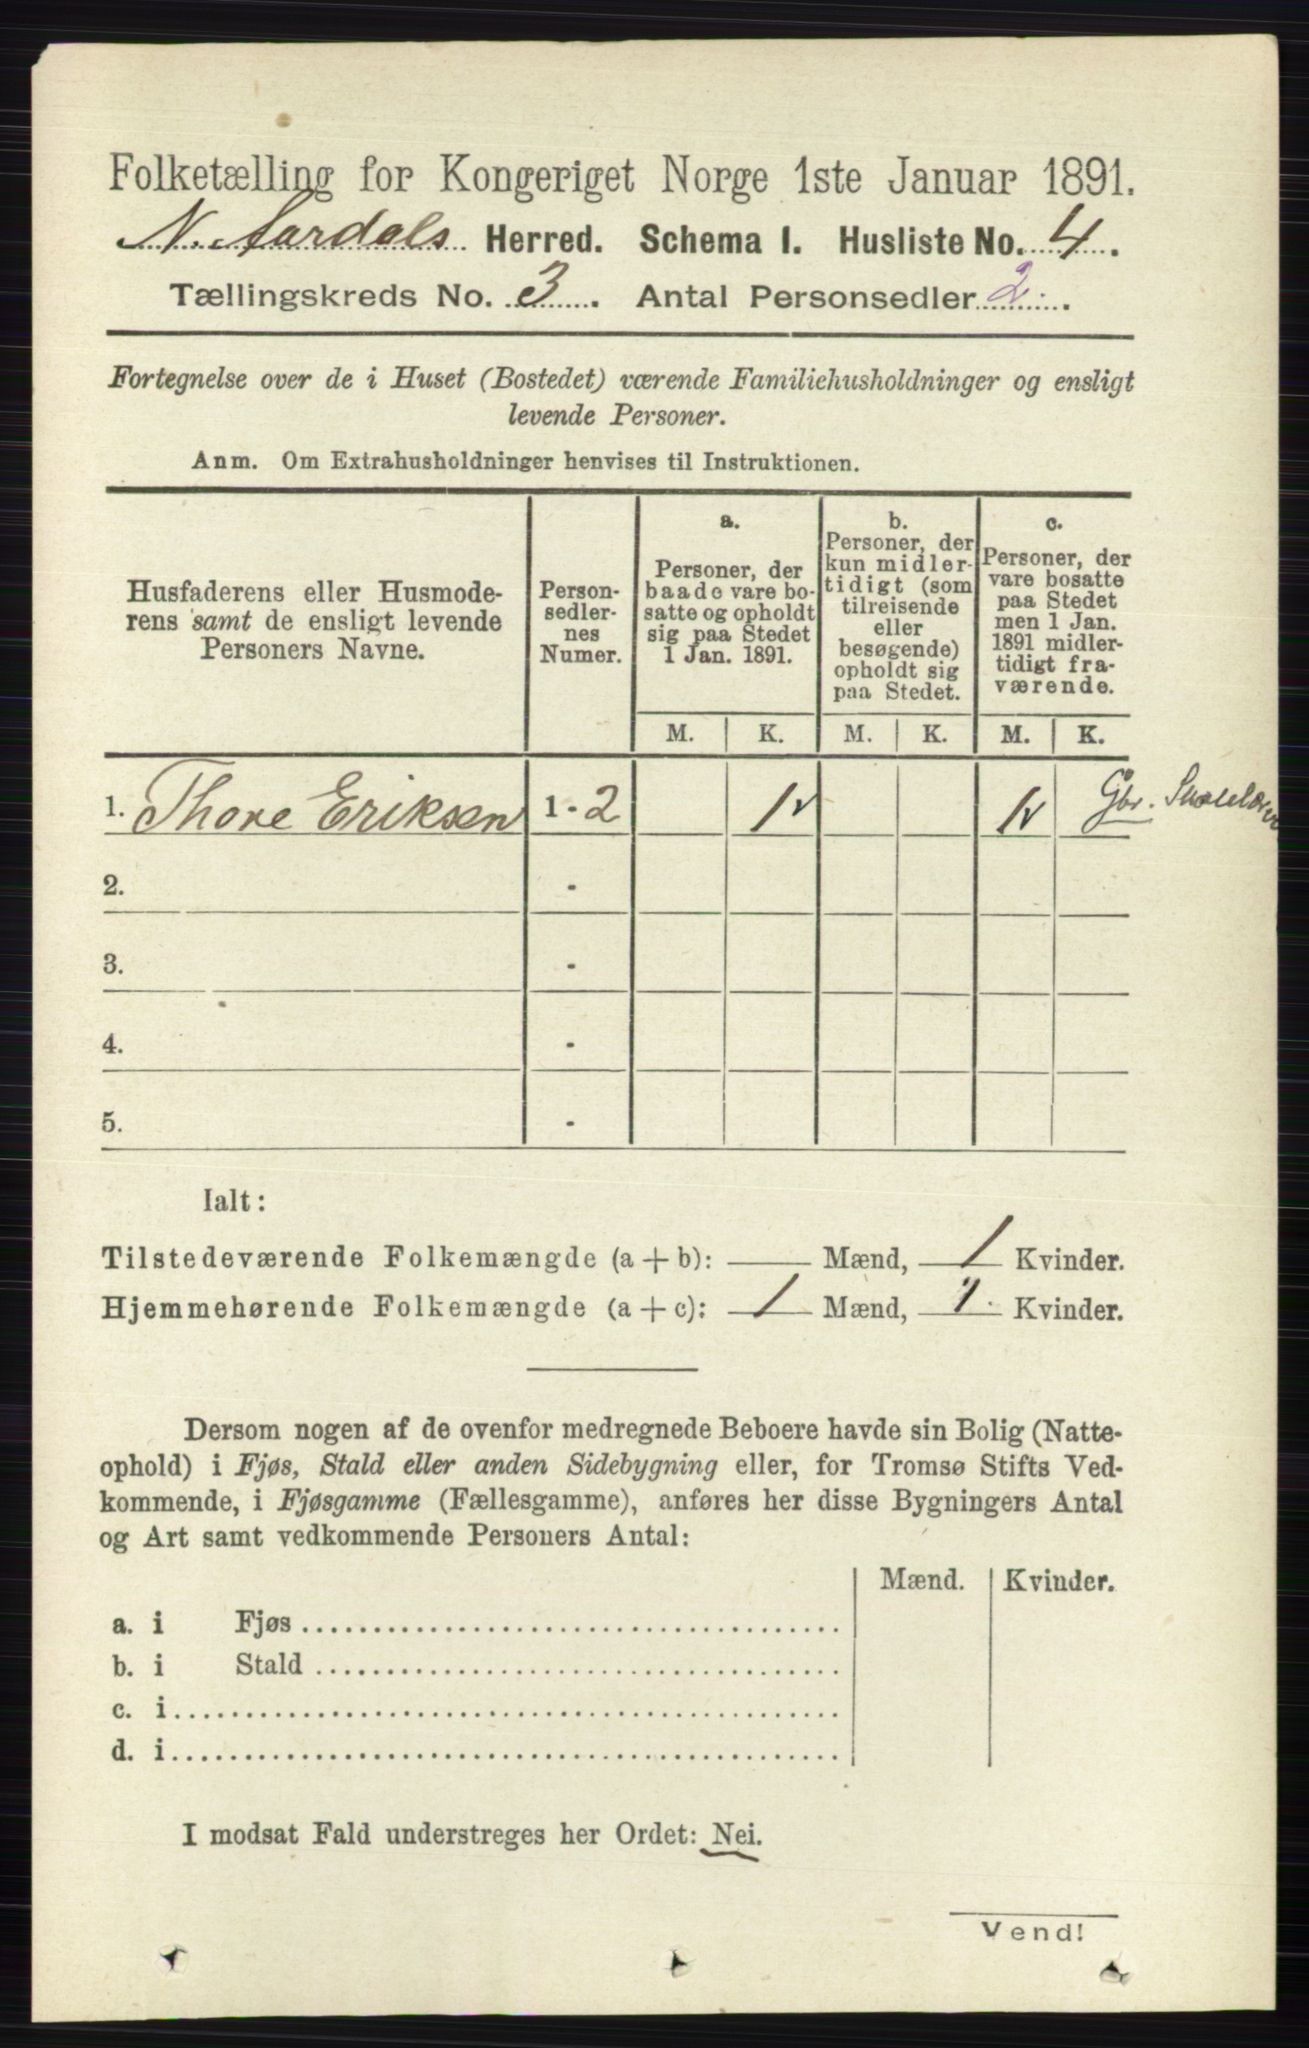 Folketælling for Kongeriget Norge 1ste Januar 1891.
N. Aurdals Herred. Schema I. Husliste No. 4.
Tællingskreds No. 3. Antal Personsedler 2.
Fortegnelse over de i Huset (Bostedet) værende Familiehusholdninger og ensligt
levende Personer.
Anm. Om Extrahusholdninger henvises til Instruktionen.
Husfaderens eller Husmode-
rens samt de ensligt levende
Personers Navne.
Person-
sedler-
nes
Numer.
a.
Personer, der
baade vare bo-
satte og opholdt
sig paa Stedet
1 Jan. 1891.
b.
Personer, der
kun midler-
tidigt (som
tilreisende
eller
besøgende)
opholdt sig
paa Stedet.
c.
Personer, der
vare bosatte
paa Stedet
men 1 Jan.
1891 midler-
tidigt fra-
værende.
M. K. M. K. M. K.
1. Thore Eriksen 1 - 2 1 1 Gbr.
2. -
3. -
4. -
5. -
Ialt:
Tilstedeværende Folkemængde (a + b): — Mænd, 1 Kvinder.
Hjemmehørende Folkemængde (a + c): 1 Mænd, 1. Kvinder.
Dersom nogen af de ovenfor medregnede Beboere havde sin Bolig (Natte-
ophold) i Fjøs, Stald eller anden Sidebygning eller, for Tromsø Stifts Ved-
kommende, i Fjøsgamme (Fællesgamme), anføres her disse Bygningers Antal
og Art samt vedkommende Personers Antal:
Mænd. Kvinder.
a. i Fjøs
b. i Stald
c. i
d. i
I modsat Fald understreges her Ordet: Nei.
Vend!